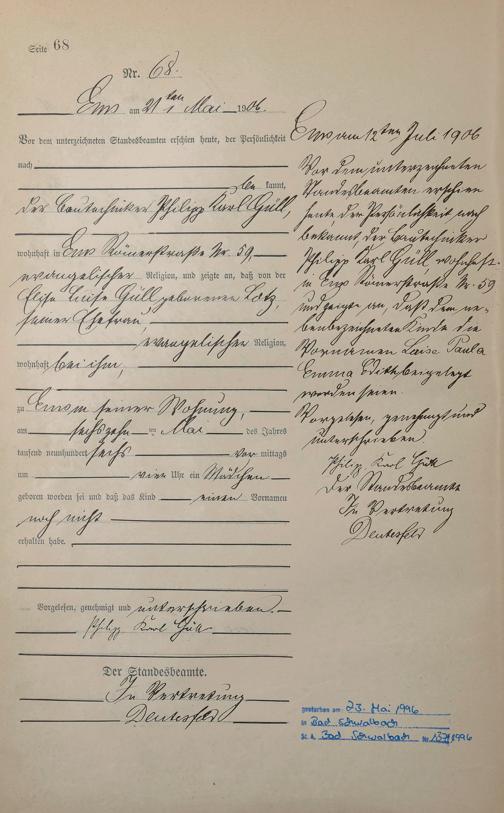 Seite 68
Nr. 68.
Ems am 21ten Mai 1906.
Vor dem unterzeichneten Standesbeamten erschien heute, der Persönlichkeit
nach
be kannt,
der Bautechniker Philipp Karl Güll,
wohnhaft in Ems Römerstraße Nr. 59,
evangelischer Religion, und zeigte an, daß von der
Elise Luise Güll geborenen Lotz,
seiner Ehefrau,
evangelischer Religion,
wohnhaft bei ihm,
zu Ems in seiner Wohnung,
am sechszehn ten Mai des Jahres
tausend neunhundert sechs vor mittags
um vier Uhr ein Mädchen
geboren worden sei und daß das Kind einen Vornamen
noch nicht
erhalten habe.
Vorgelesen, genehmigt und unterschrieben.
Philipp Karl Güll
Der Standesbeamte.
In Vertretung
Deutesfeld
Ems am 12ten Juli 1906
Vor dem unterzeichneten
Standesbeamten erschien
heute, der Persönlichkeit nach
bekannt, der Bautechniker
Philipp Karl Güll, wohnhaft
in Ems Römerstraße Nr. 59
und zeigte an, daß dem ne-
benbezeichneten Kinde die
Vornamen Luise Paula
Emma Edith beigelegt
worden seien.
Vorgelesen, genehmigt und
unterschrieben.
Philipp Karl Güll
Der Standesbeamte
In Vertretung
Deutesfeld
gestorben am 23. Mai 1996
in Bad Schwalbach
St. A. Bad Schwalbach Nr. 137/1996